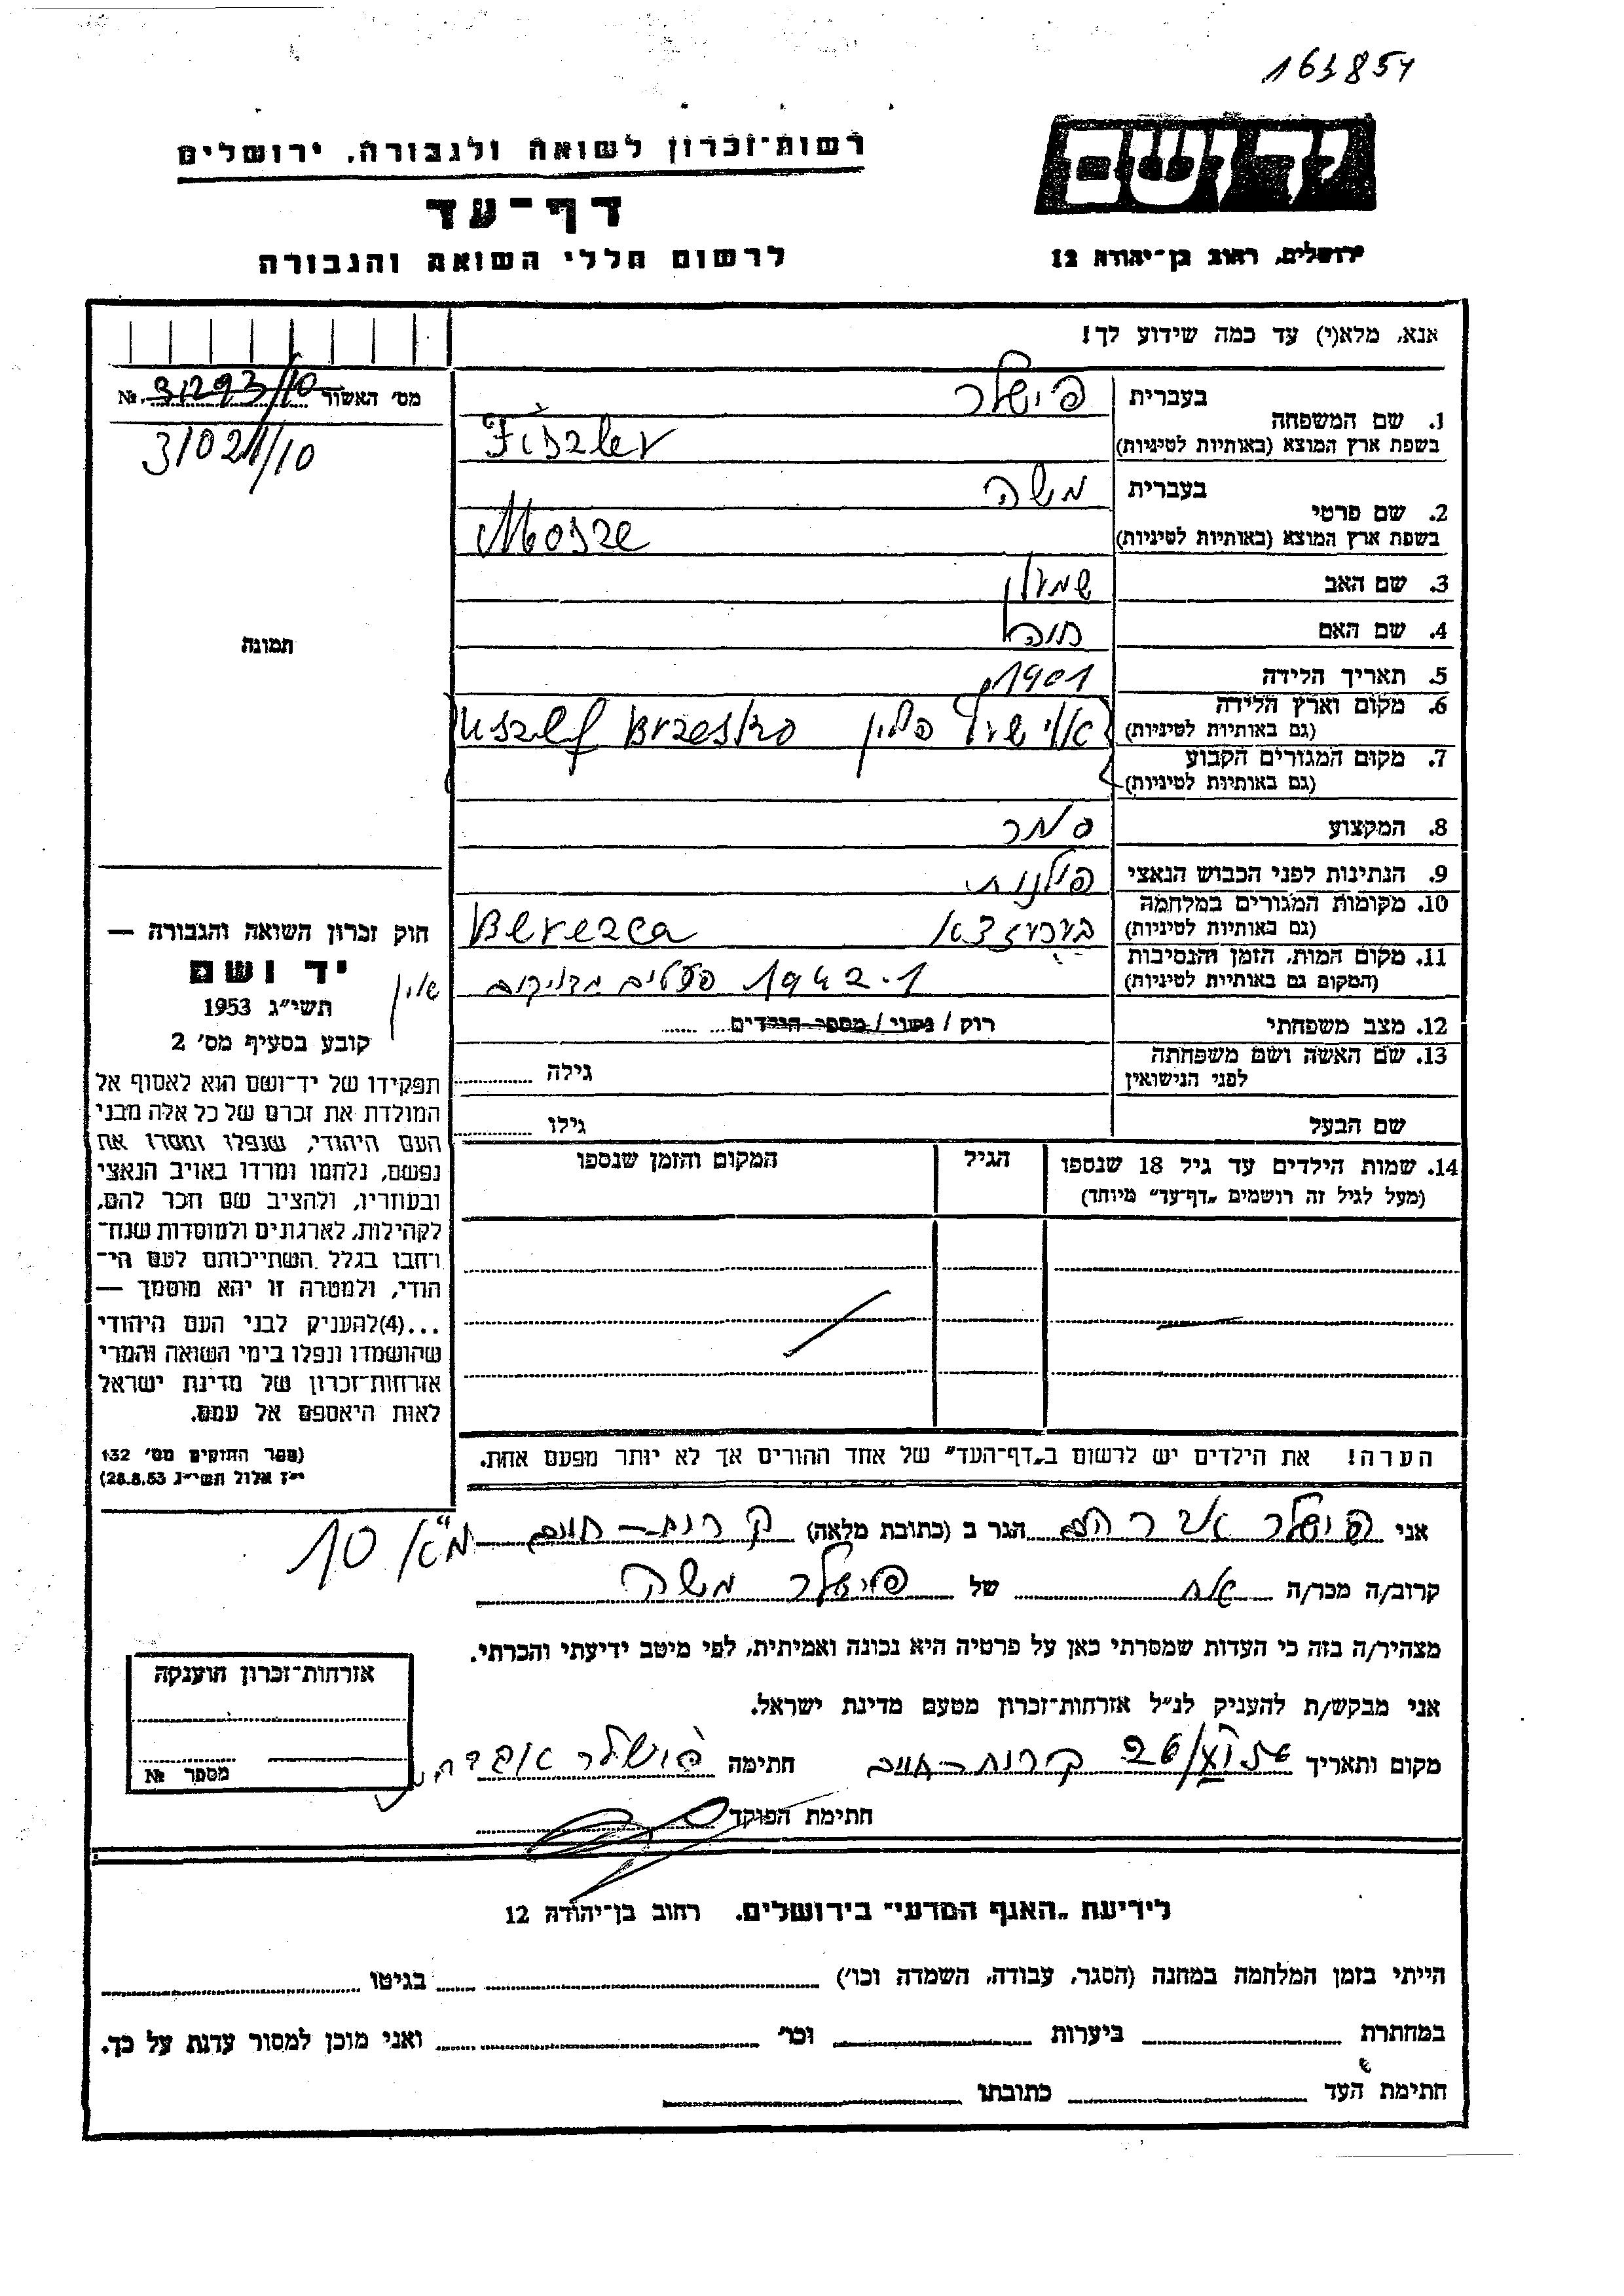 163854
יד ושם
רשות־זכרון לשואה ולגבורה, ירושלים
דף־עד
ירושלים, רחוב בן־יהודה 12
לרשום חללי השואה והגבורה
אנא, מלא(י) עד כמה שידוע לך!
מס' האשור № 31293/10
31021/10
תמונה
בעברית פישלר
1. שם המשפחה
בשפת ארץ המוצא (באותיות לטיניות) Fiszler
בעברית משה
2. שם פרטי
בשפת ארץ המוצא (באותיות לטיניות) Mosze
3. שם האב שמעון
4. שם האם
5. תאריך הלידה 1901
6. מקום וארץ הלידה
(גם באותיות לטיניות) פולין
7. מקום המגורים הקבוע
(גם באותיות לטיניות)
8. המקצוע סוחר
9. הנתינות לפני הכבוש הנאצי פולנית
10. מקומות המגורים במלחמה
(גם באותיות לטיניות) Bereza
11. מקום המות, הזמן והנסיבות
(המקום גם באותיות לטיניות) 1942
12. מצב משפחתי רוק / נשוי / מספר הילדים
13. שם האשה ושם משפחתה
לפני הנישואין גילה
שם הבעל גילו
14. שמות הילדים עד גיל 18 שנספו הגיל המקום והזמן שנספו
(מעל לגיל זה רושמים „דף־עד" מיוחד)
חוק זכרון השואה והגבורה —
יד ושם
תשי״ג 1953
קובע בסעיף מס' 2
תפקידו של יד־ושם הוא לאסוף אל
המולדת את זכרם של כל אלה מבני
העם היהודי, שנפלו ומסרו את
נפשם, נלחמו ומרדו באויב הנאצי
ובעוזריו, ולהציב שם וזכר להם,
לקהילות, לארגונים ולמוסדות שנח־
רחבו בגלל השתייכותם לעם הי־
הודי, ולמטרה זו יהא מוסמך —
...(4)להעניק לבני העם היהודי
שהושמדו ונפלו בימי השואה והמרי
אזרחות־זכרון של מדינת ישראל
לאות היאספם אל עמם.
(ספר החוקים מס' 132
י״ז אלול תשי״ג 28.8.53)
הערה! את הילדים יש לרשום ב„דף־העד" של אחד ההורים אך לא יותר מפעם אחת.
אני פישלר אברהם הגר ב (כתובת מלאה) קרית־חיים
קרוב/ה מכר/ה אח של פישלר משה
מצהיר/ה בזה כי העדות שמסרתי כאן על פרטיה היא נכונה ואמיתית, לפי מיטב ידיעתי והכרתי.
אני מבקש/ת להעניק לנ״ל אזרחות־זכרון מטעם מדינת ישראל.
מקום ותאריך קרית־חיים חתימה פישלר אברהם
חתימת הפוקד
אזרחות־זכרון הוענקה
מספר №
לידיעת „האגף המדעי" בירושלים. רחוב בן־יהודה 12
הייתי בזמן המלחמה במחנה (הסגר, עבודה, השמדה וכו') בגיטו
במחתרת ביערות וכו' ואני מוכן למסור עדות על כך.
חתימת העד כתובתו